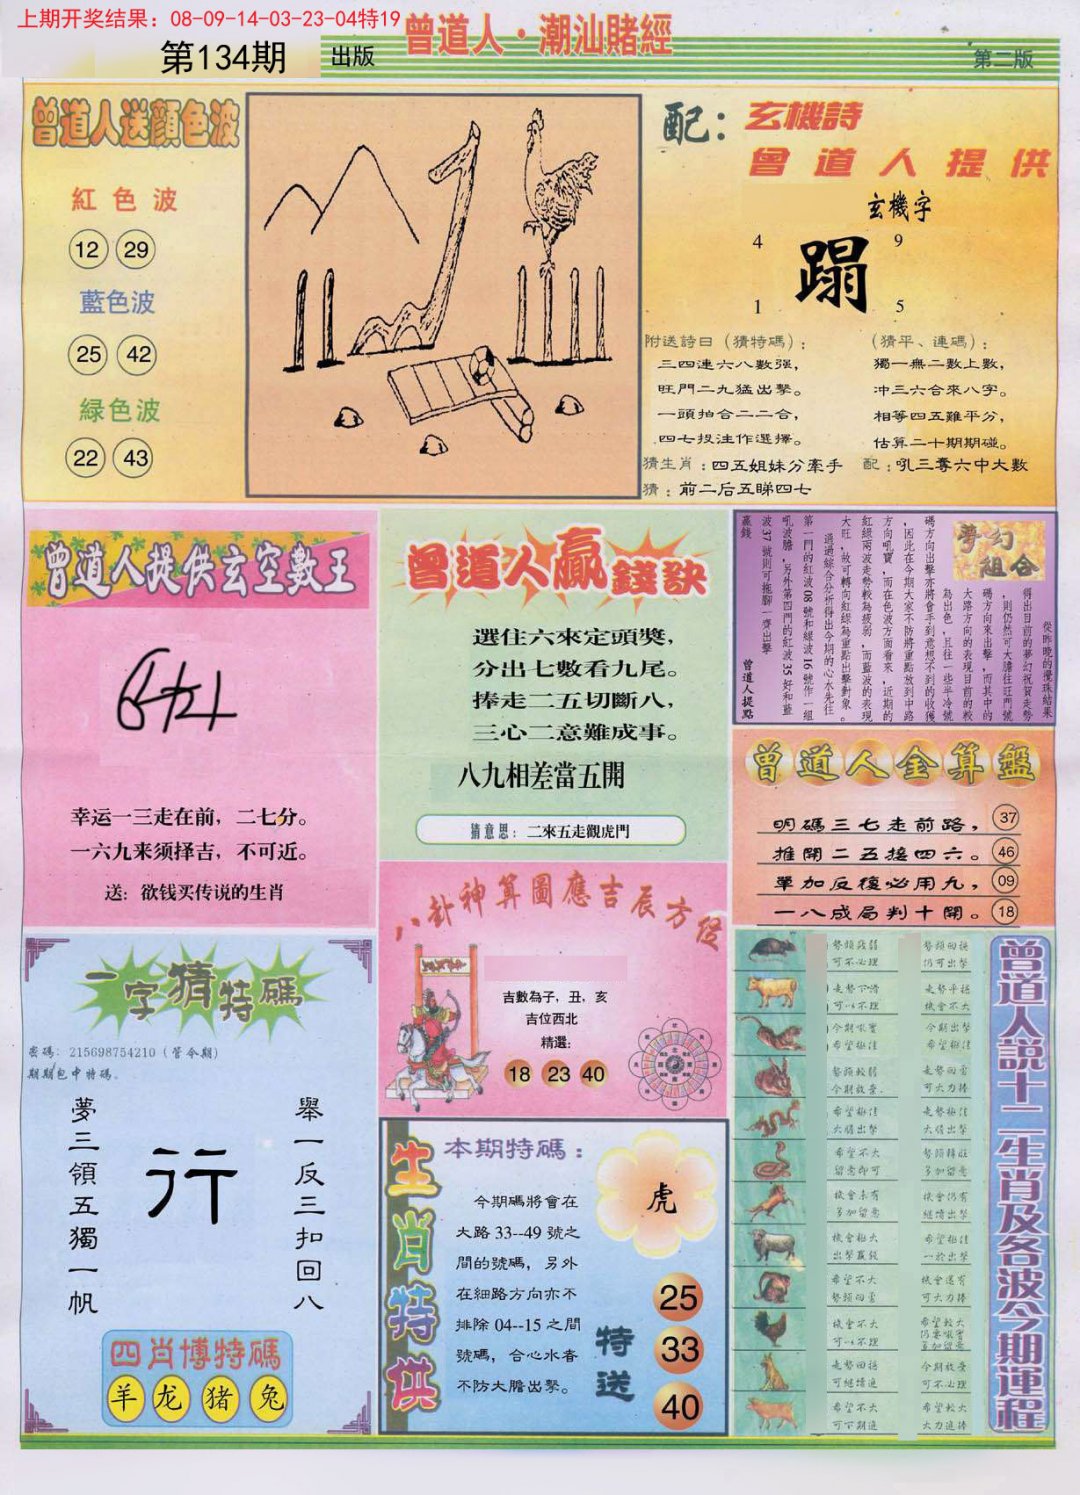 上期开奖结果：08-09-14-03-23-04特19
第134期
出版
曾道人·潮汕賭經
第二版
曾道人送顏色波
紅色波
12 29
藍色波
25 42
緑色波
22 43
配：
玄機詩
曾道人提供
玄機字
4 9
蹋
1 5
附送詩曰（猜特碼）：
三四連六八數强，
旺門二九猛出擊。
一頭拍合二二合，
四七投注作選擇。
猜生肖：四五姐妹分牽手
猜：前二后五睇四七
（猜平、連碼）：
獨一無二數上數，
冲三六合來八字。
相等四五難平分，
估算二十期期碰。
配：吼三奪六中大數
曾道人提供玄空數王
幸运一三走在前，二七分。
一六九来须择吉，不可近。
送：欲钱买传说的生肖
曾道人贏錢訣
選住六來定頭獎，
分出七數看九尾。
捧走二五切斷八，
三心二意難成事。
八九相差當五開
猜意思：二來五走觀虎門
夢幻組合
從昨晚的攪珠結果
得出目前的夢幻祝賀走勢
，則仍然可大膽往旺門號
碼方向來出擊，而其中的
大路方向的表現目前的較
為出色，且往一些半冷號
碼方向出擊亦將會手到意想不到的收獲
，因此在今期大家不防將重點放到中路
方向吼寶，而在色波方面看來，近期的
紅緑兩波走勢較為疲弱，而藍波的表現
大旺，故可轉向紅緑為重點出擊對象。
通過綜合分析得出今期的心水先往
第一門的紅波08號和緑波16號作一組
吼波膽，另外第四門的紅波35好和藍
波37號則可拖腳一齊出擊
贏錢
曾道人提點
曾道人金算盤
明碼三七走前路，37
推開二五接四六。46
單加反復必用九，09
一八成局判十開。18
八卦神算圖應吉辰方位
吉數為子，丑，亥
吉位西北
精選：
18 23 40
一字猜特碼
密碼：215698754210（管今期）
期期包中特碼。
夢三領五獨一帆
行
舉一反三扣回八
四肖博特碼
羊 龙 猪 兔
生肖特供
本期特碼：
今期碼將會在
大路33--49號之
間的號碼，另外
在細路方向亦不
排除04--15之間
號碼，合心水者
不防大膽出擊。
虎
特送
25
33
40
曾道人說十二生肖及各波今期運程